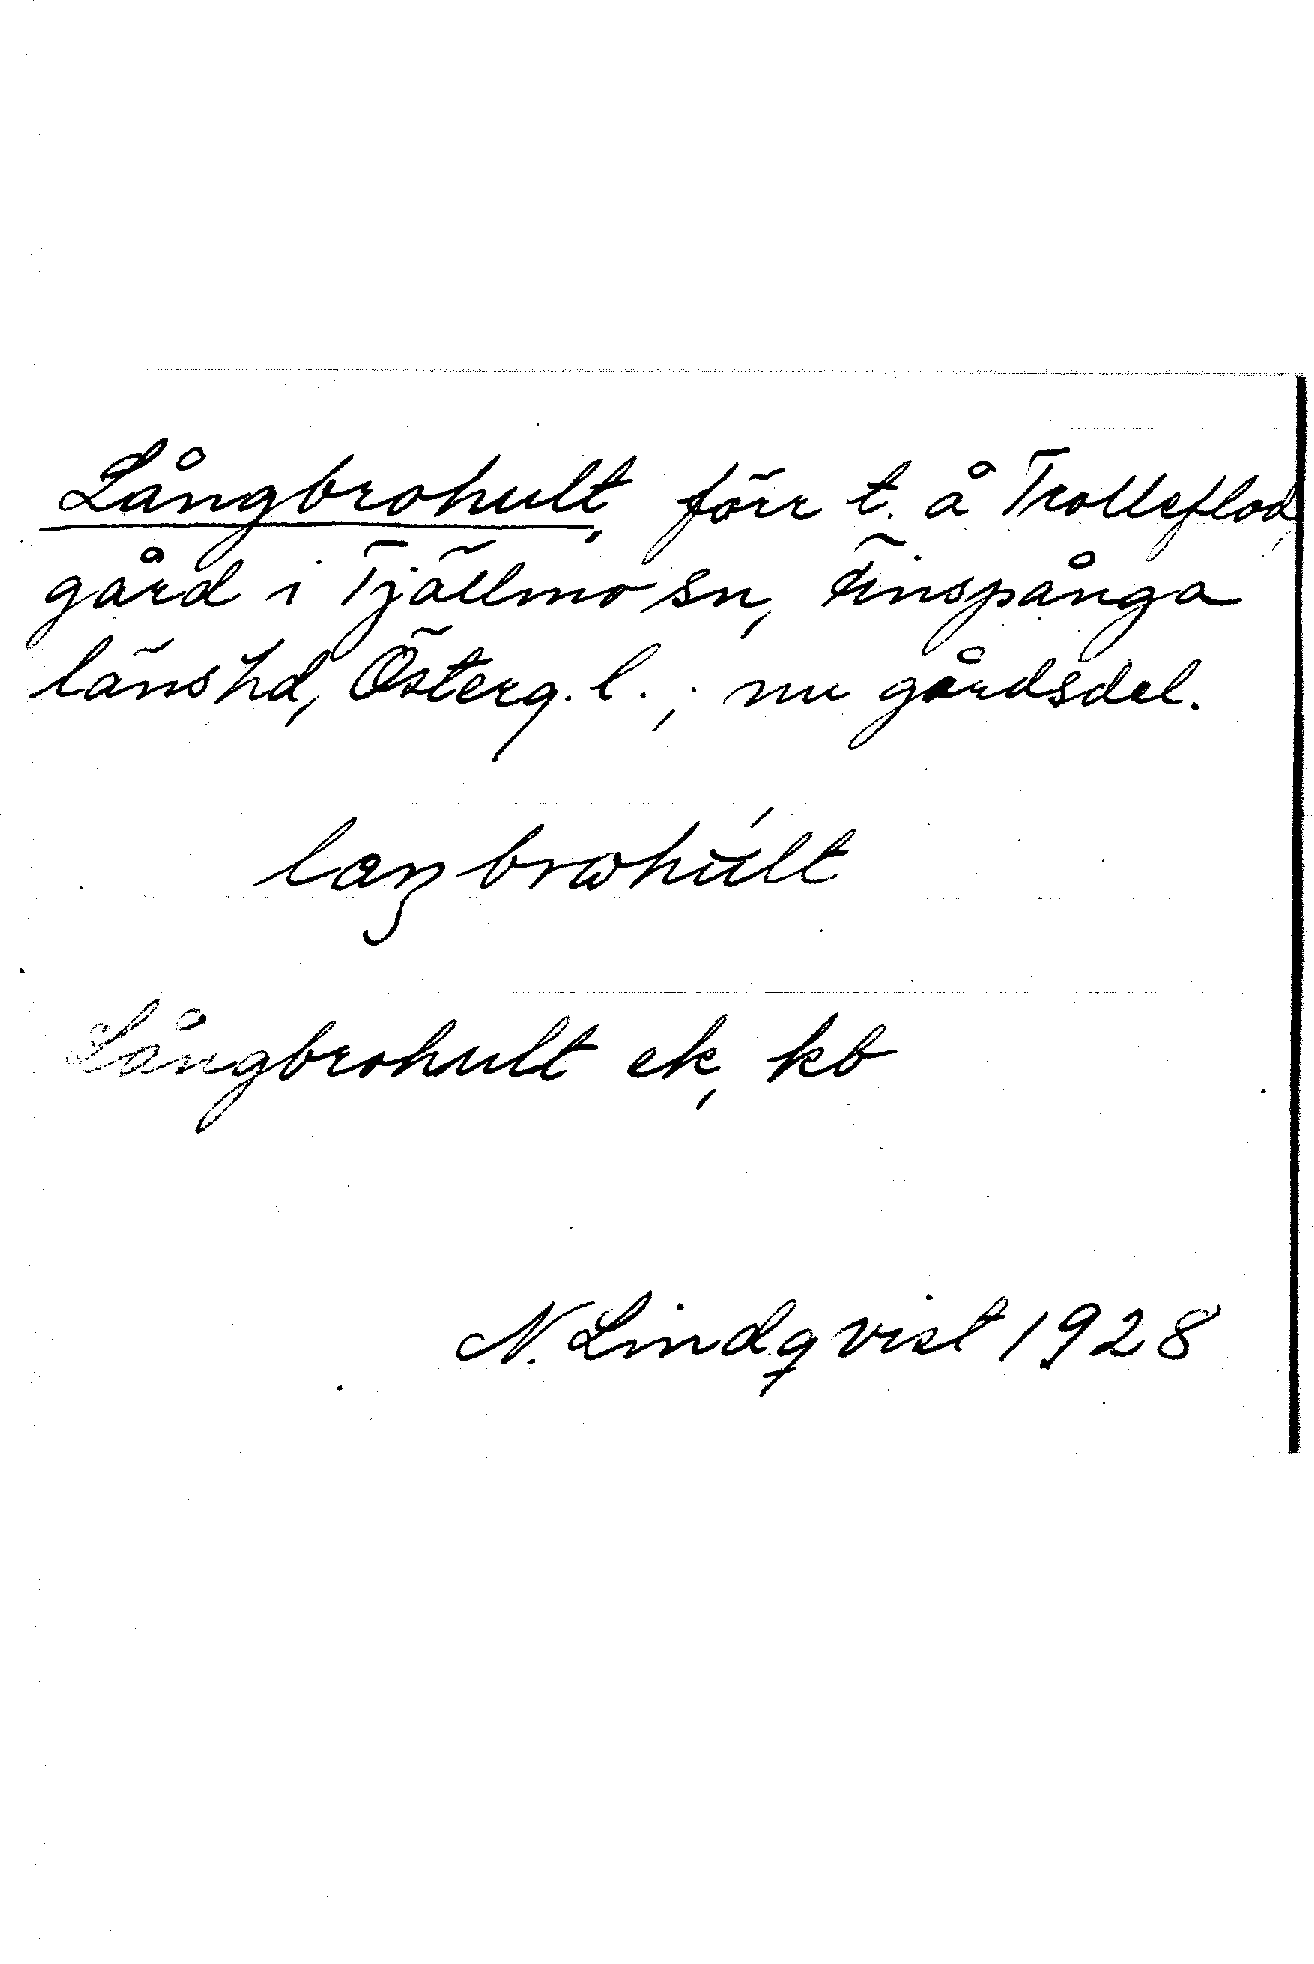 Långbrohult, förr t. å Trolleflod,
gård i Tjällmo sn, Finspånga
länshd, Österg. l.; nu gårdsdel.
Långbrohult ek, kb
N. Lindqvist 1928